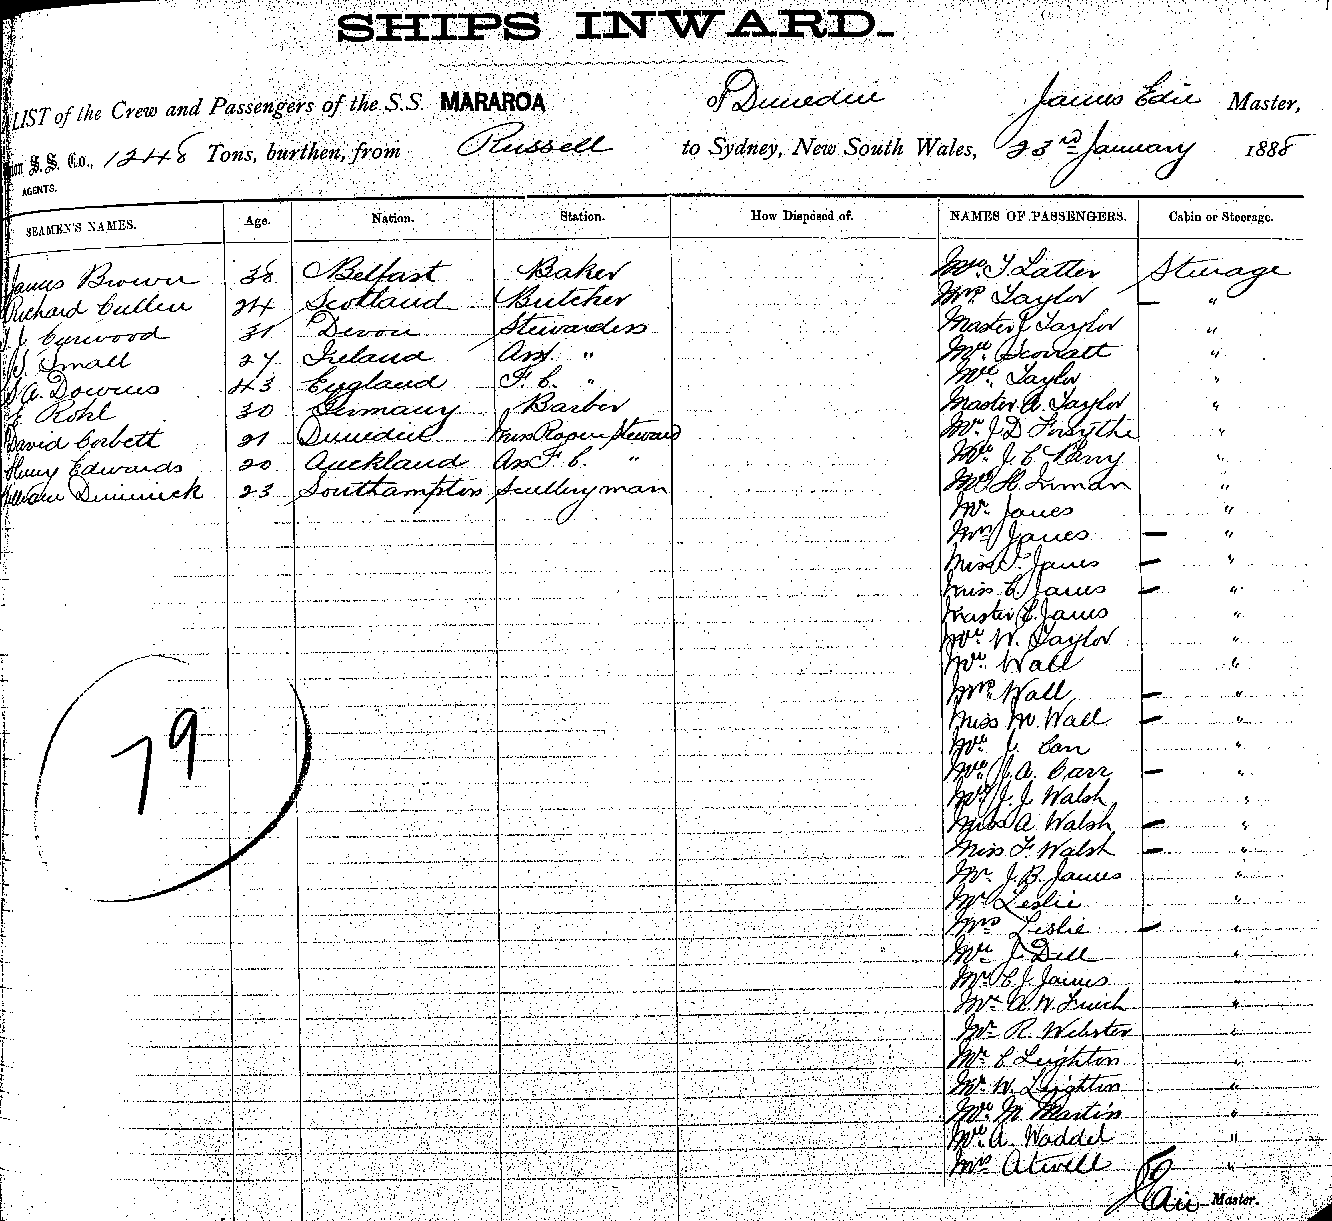 SHIPS INWARD.
LIST of the Crew and Passengers of the S.S. MARAROA of Dunedin James Edie Master,
S.S. Co., 1248 Tons, burthen, from Russell to Sydney, New South Wales, 23rd January 1888
AGENTS.
SEAMEN'S NAMES. Age. Nation. Station. How Disposed of. NAMES OF PASSENGERS. Cabin or Steerage.
James Brown 38 Belfast Baker Mr. T Latter Steerage
Richard Cullen 24 Scotland Butcher Mrs Taylor — "
Curwood 31 Devon Stewardess Master J Taylor "
Small 27 Ireland Ass. " Mr. Scorratt "
A. Downes 43 England F. C. " Mr. Taylor "
Rohl 30 Germany Barber Master A Taylor "
David Corbett 21 Dunedin Mess Room Steward Mr. J D Forsythe "
Henry Edwards 20 Auckland Ass F. C. " Mr. J. C Perry "
William Dimmick 23 Southampton Sculleryman Mr. H. Inman "
Mr. James "
Mrs James — "
Miss James — "
Miss C. James — "
Master C. James "
Mr. W. Taylor "
Mr. Wall "
Mrs Wall — "
Miss M. Wall — "
Mr. J. Carr "
J. A. Carr — "
Mr J. J. Walsh "
Miss A Walsh — "
Miss F. Walsh — "
Mr. J. B. James "
Mr Leslie "
Mrs Leslie — "
Mr. J. Dell "
Mr. C. J. James "
Mr. A. W. "
Mr. R. Webster "
Mr. C Leighton "
Mr. W. Leighton "
Mr. M. Martin "
Mr. A. Waddel "
Mrs Atwell "
79
J Edie Master.